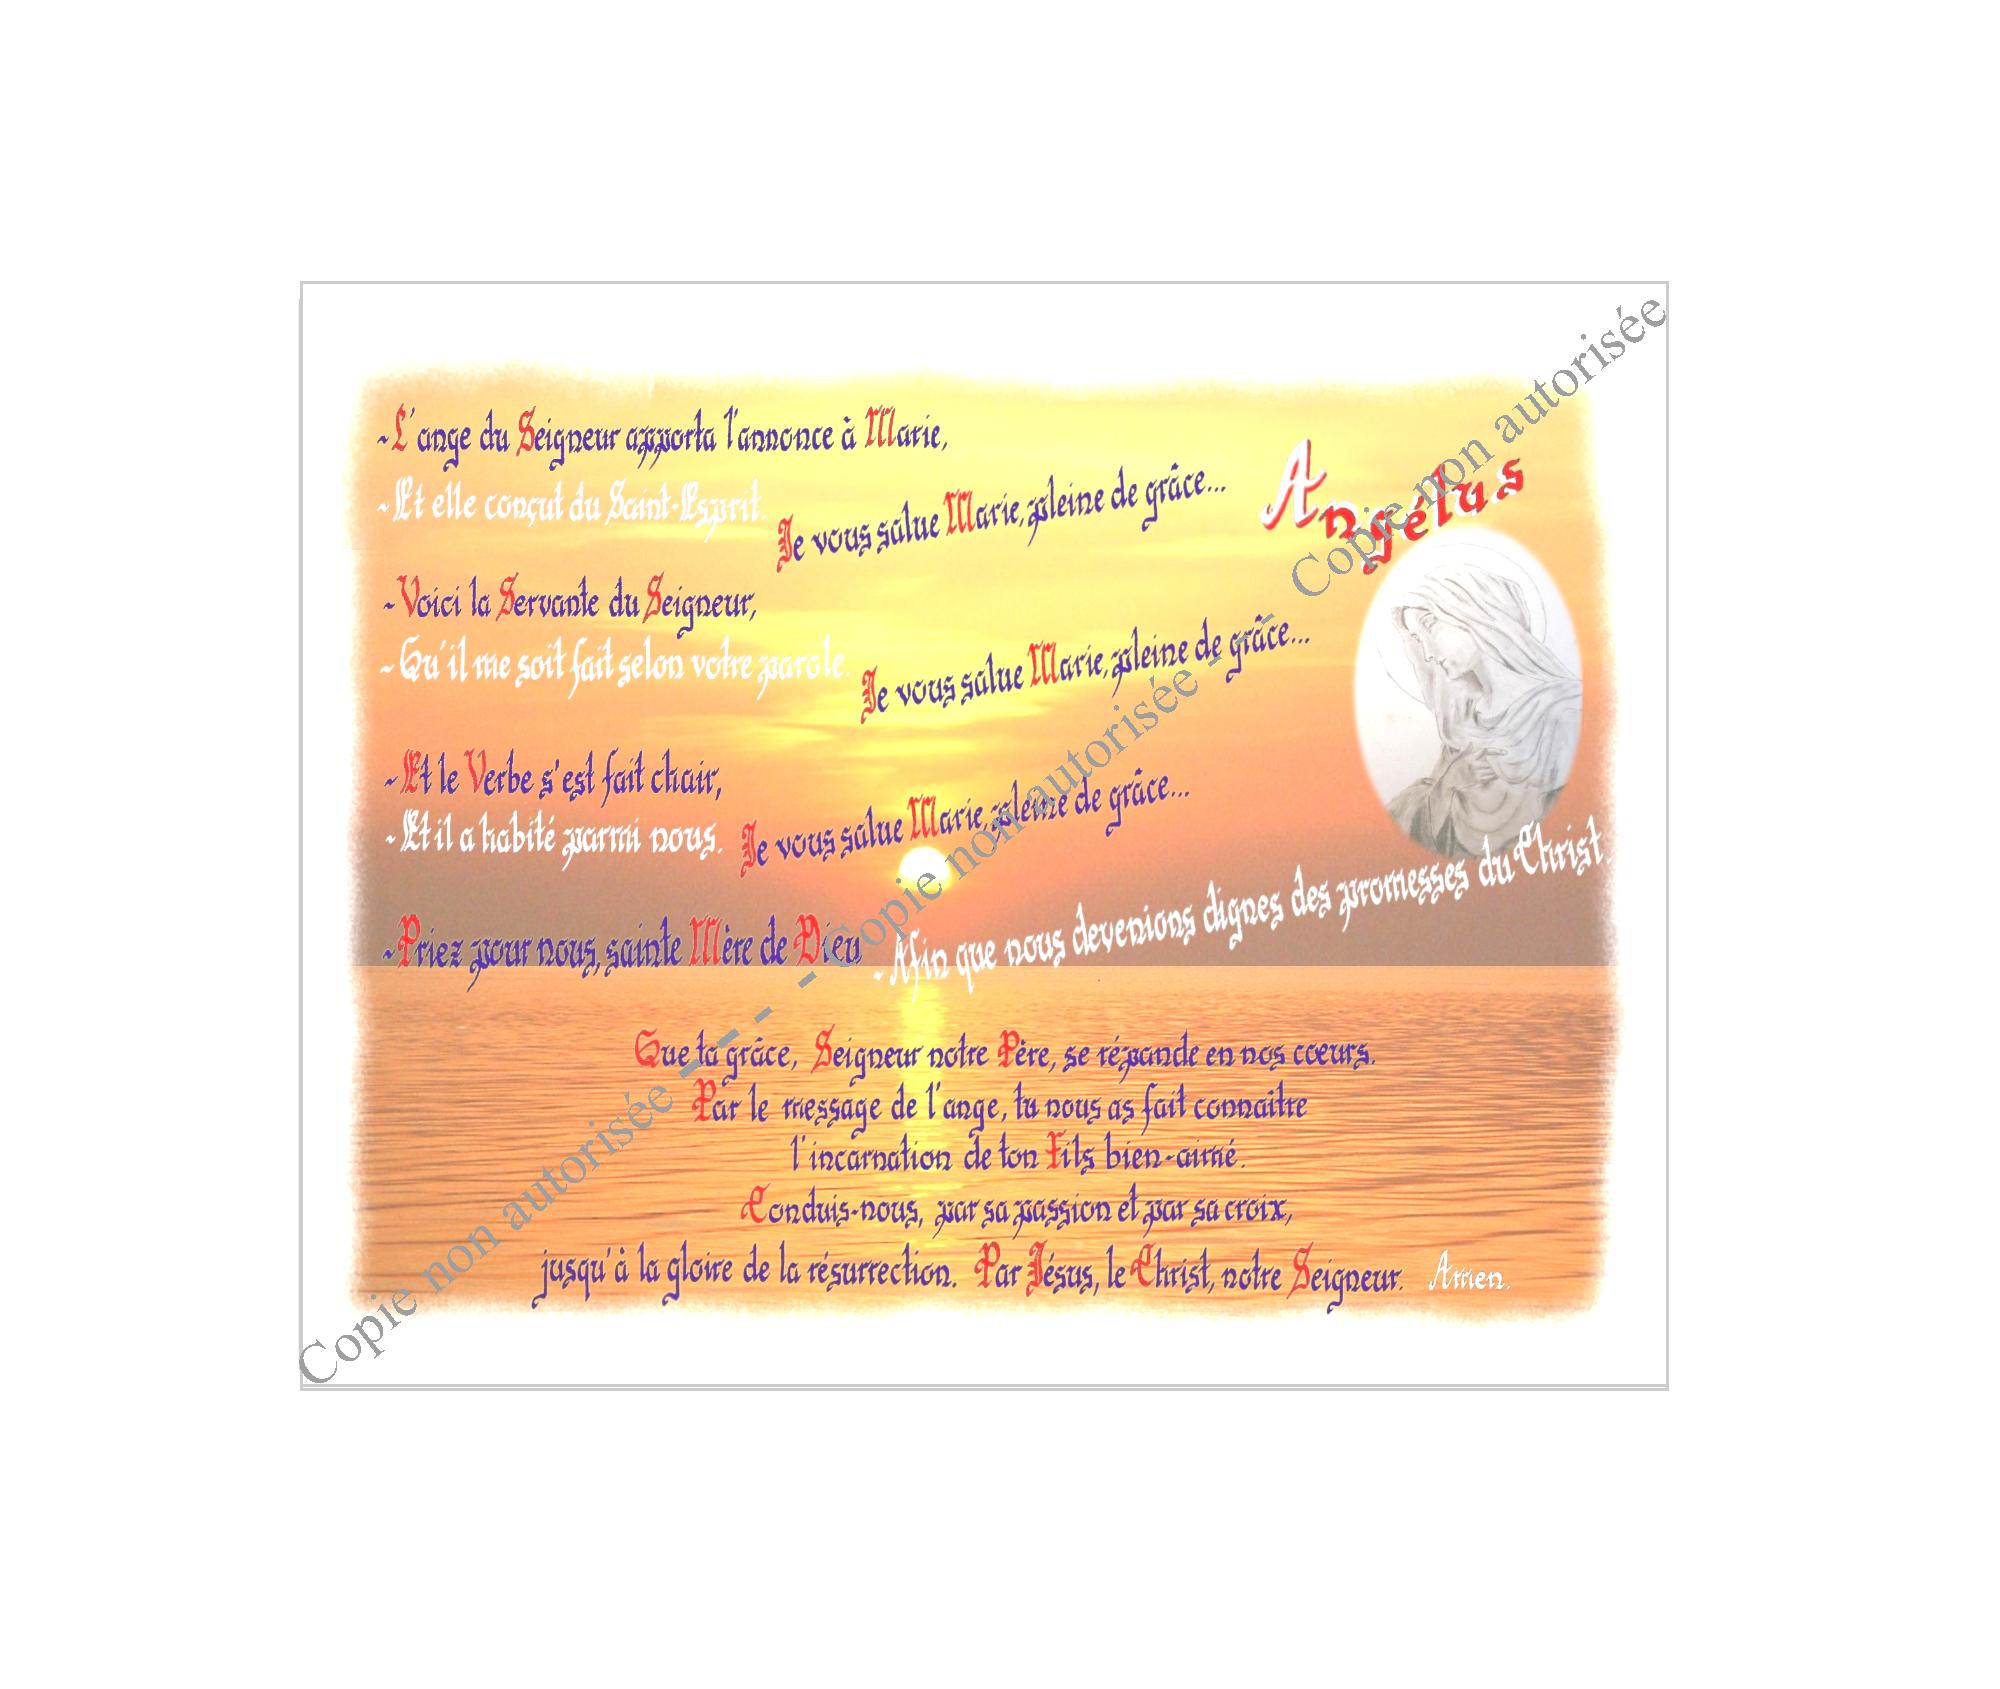 Angélus
~L'ange du Seigneur apporta l'annonce à Marie,
~Et elle conçut du Saint-Esprit.
Je vous salue Marie, pleine de grâce...
~Voici la Servante du Seigneur,
~Qu'il me soit fait selon votre parole.
Je vous salue Marie, pleine de grâce...
~Et le Verbe s'est fait chair,
~Et il a habité parmi nous.
Je vous salue Marie, pleine de grâce...
~Priez pour nous, sainte Mère de Dieu
~Afin que nous devenions dignes des promesses du Christ.
Que ta grâce, Seigneur notre Père, se répande en nos cœurs.
Par le message de l'ange, tu nous as fait connaître
l'incarnation de ton Fils bien-aimé.
Conduis-nous, par sa passion et par sa croix,
jusqu'à la gloire de la résurrection. Par Jésus, le Christ, notre Seigneur. Amen.
Copie non autorisée - - - - Copie non autorisée - - Copie non autorisée